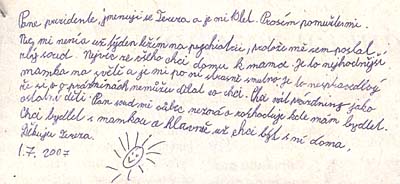 Pane prezidente, jmenuji se Tereza a je mi 8 let. Prosím pomužtemi.
Nic mi není a už týden ležím na psychiatrii, protože mě sem poslal
zlý soud. Nejvíc ze všeho chci domu k mamce. Je to nejhodnější
mamka na světě a je mi po ní strašně smutno. Je to nespravedlivý
že si o prázdninách nemůžu dělat co chci. Chci mít prázdniny jako
ostatní děti. Pan soud mě vůbec nezná a rozhoduje kde mám bydlet.
Chci bydlet s mamkou a hlavně už chci být s ní doma.
Děkuju Tereza.
1.7. 2007